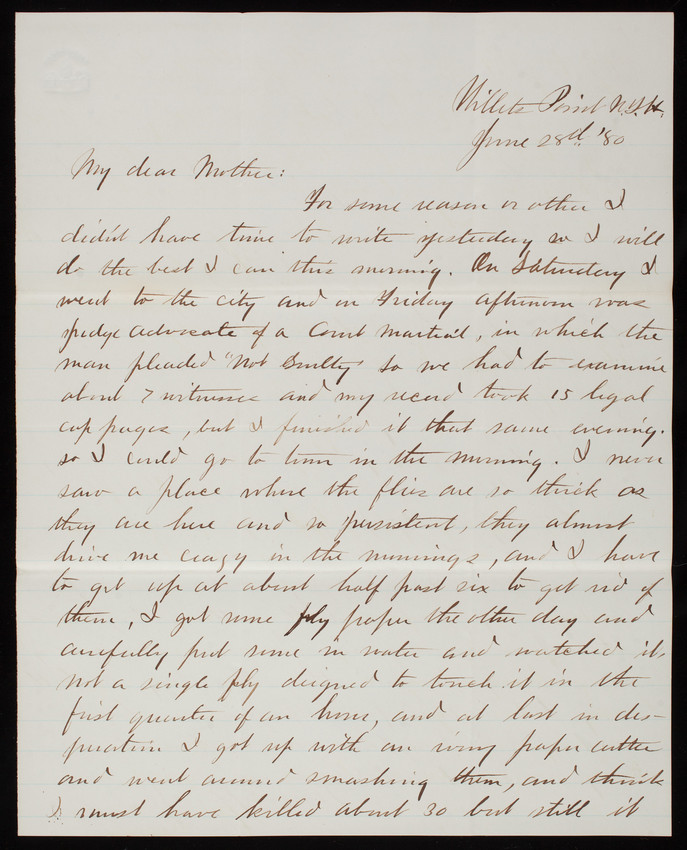 Willets Point N.Y.H.
June 28d. '80
My dear Mother:
For some reason or other I
didn't have time to write yesterday so I will
do the best I can this morning. On Saturday I
went to the city and on Friday afternoon was
Judge advocate of a Court Martial, in which the
man pleaded "Not Guilty" so we had to examine
about 7 witnesses and my record took 15 legal
cap pages, but I finished it that same evening.
so I could go to town in the morning. I never
saw a place where the flies are so thick as
they are here and so persistent, they almost
drive me crazy in the mornings, and I have
to get up at about half past six to get rid of
them, I got some fly paper the other day and
carefully put some in water and watched it,
not a single fly deigned to touch it in the
first quarter of an hour, and at last in des-
peration I got up with an ivory paper cutter
and went around smashing them, and think
I must have killed about 30 but still it